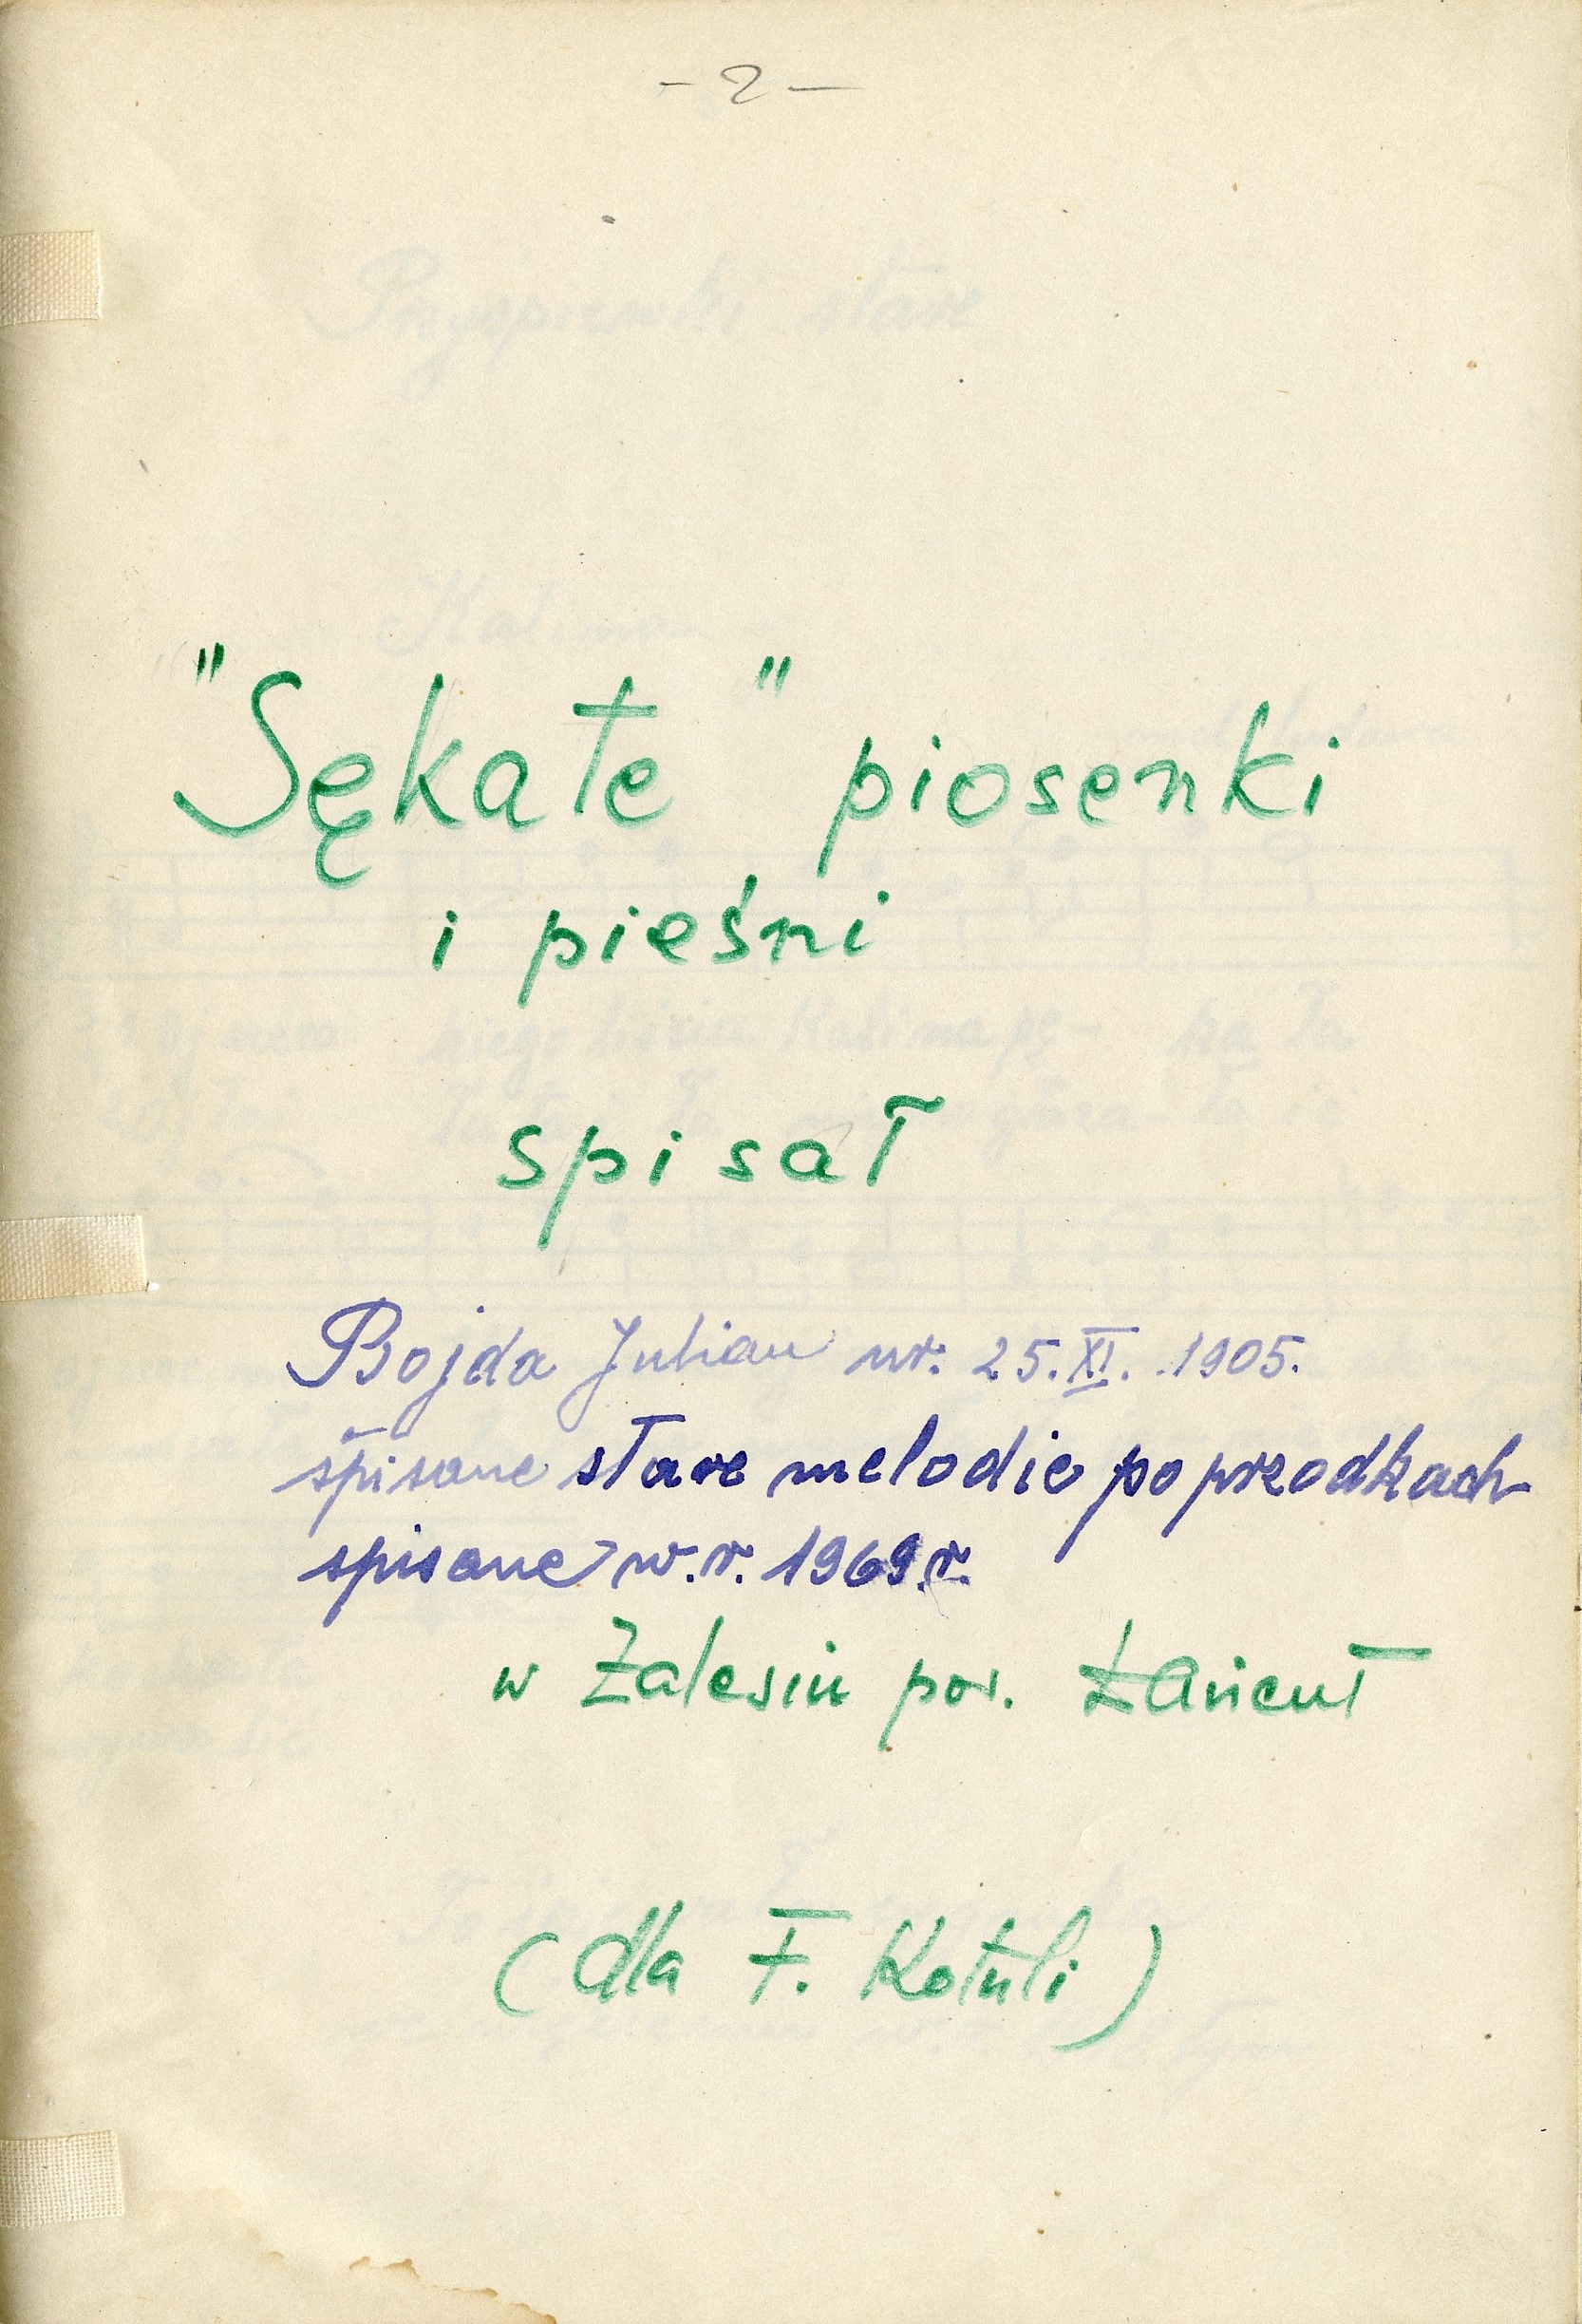 - 2 -
"Sękate" piosenki
i pieśni
spisał
Bojda Julian ur. 25.XI. 1905.
spisane stare melodie po przodkach
spisane w.r. 1969.r.
w Zalesiu pow. Łańcut
(dla F. Kotuli)